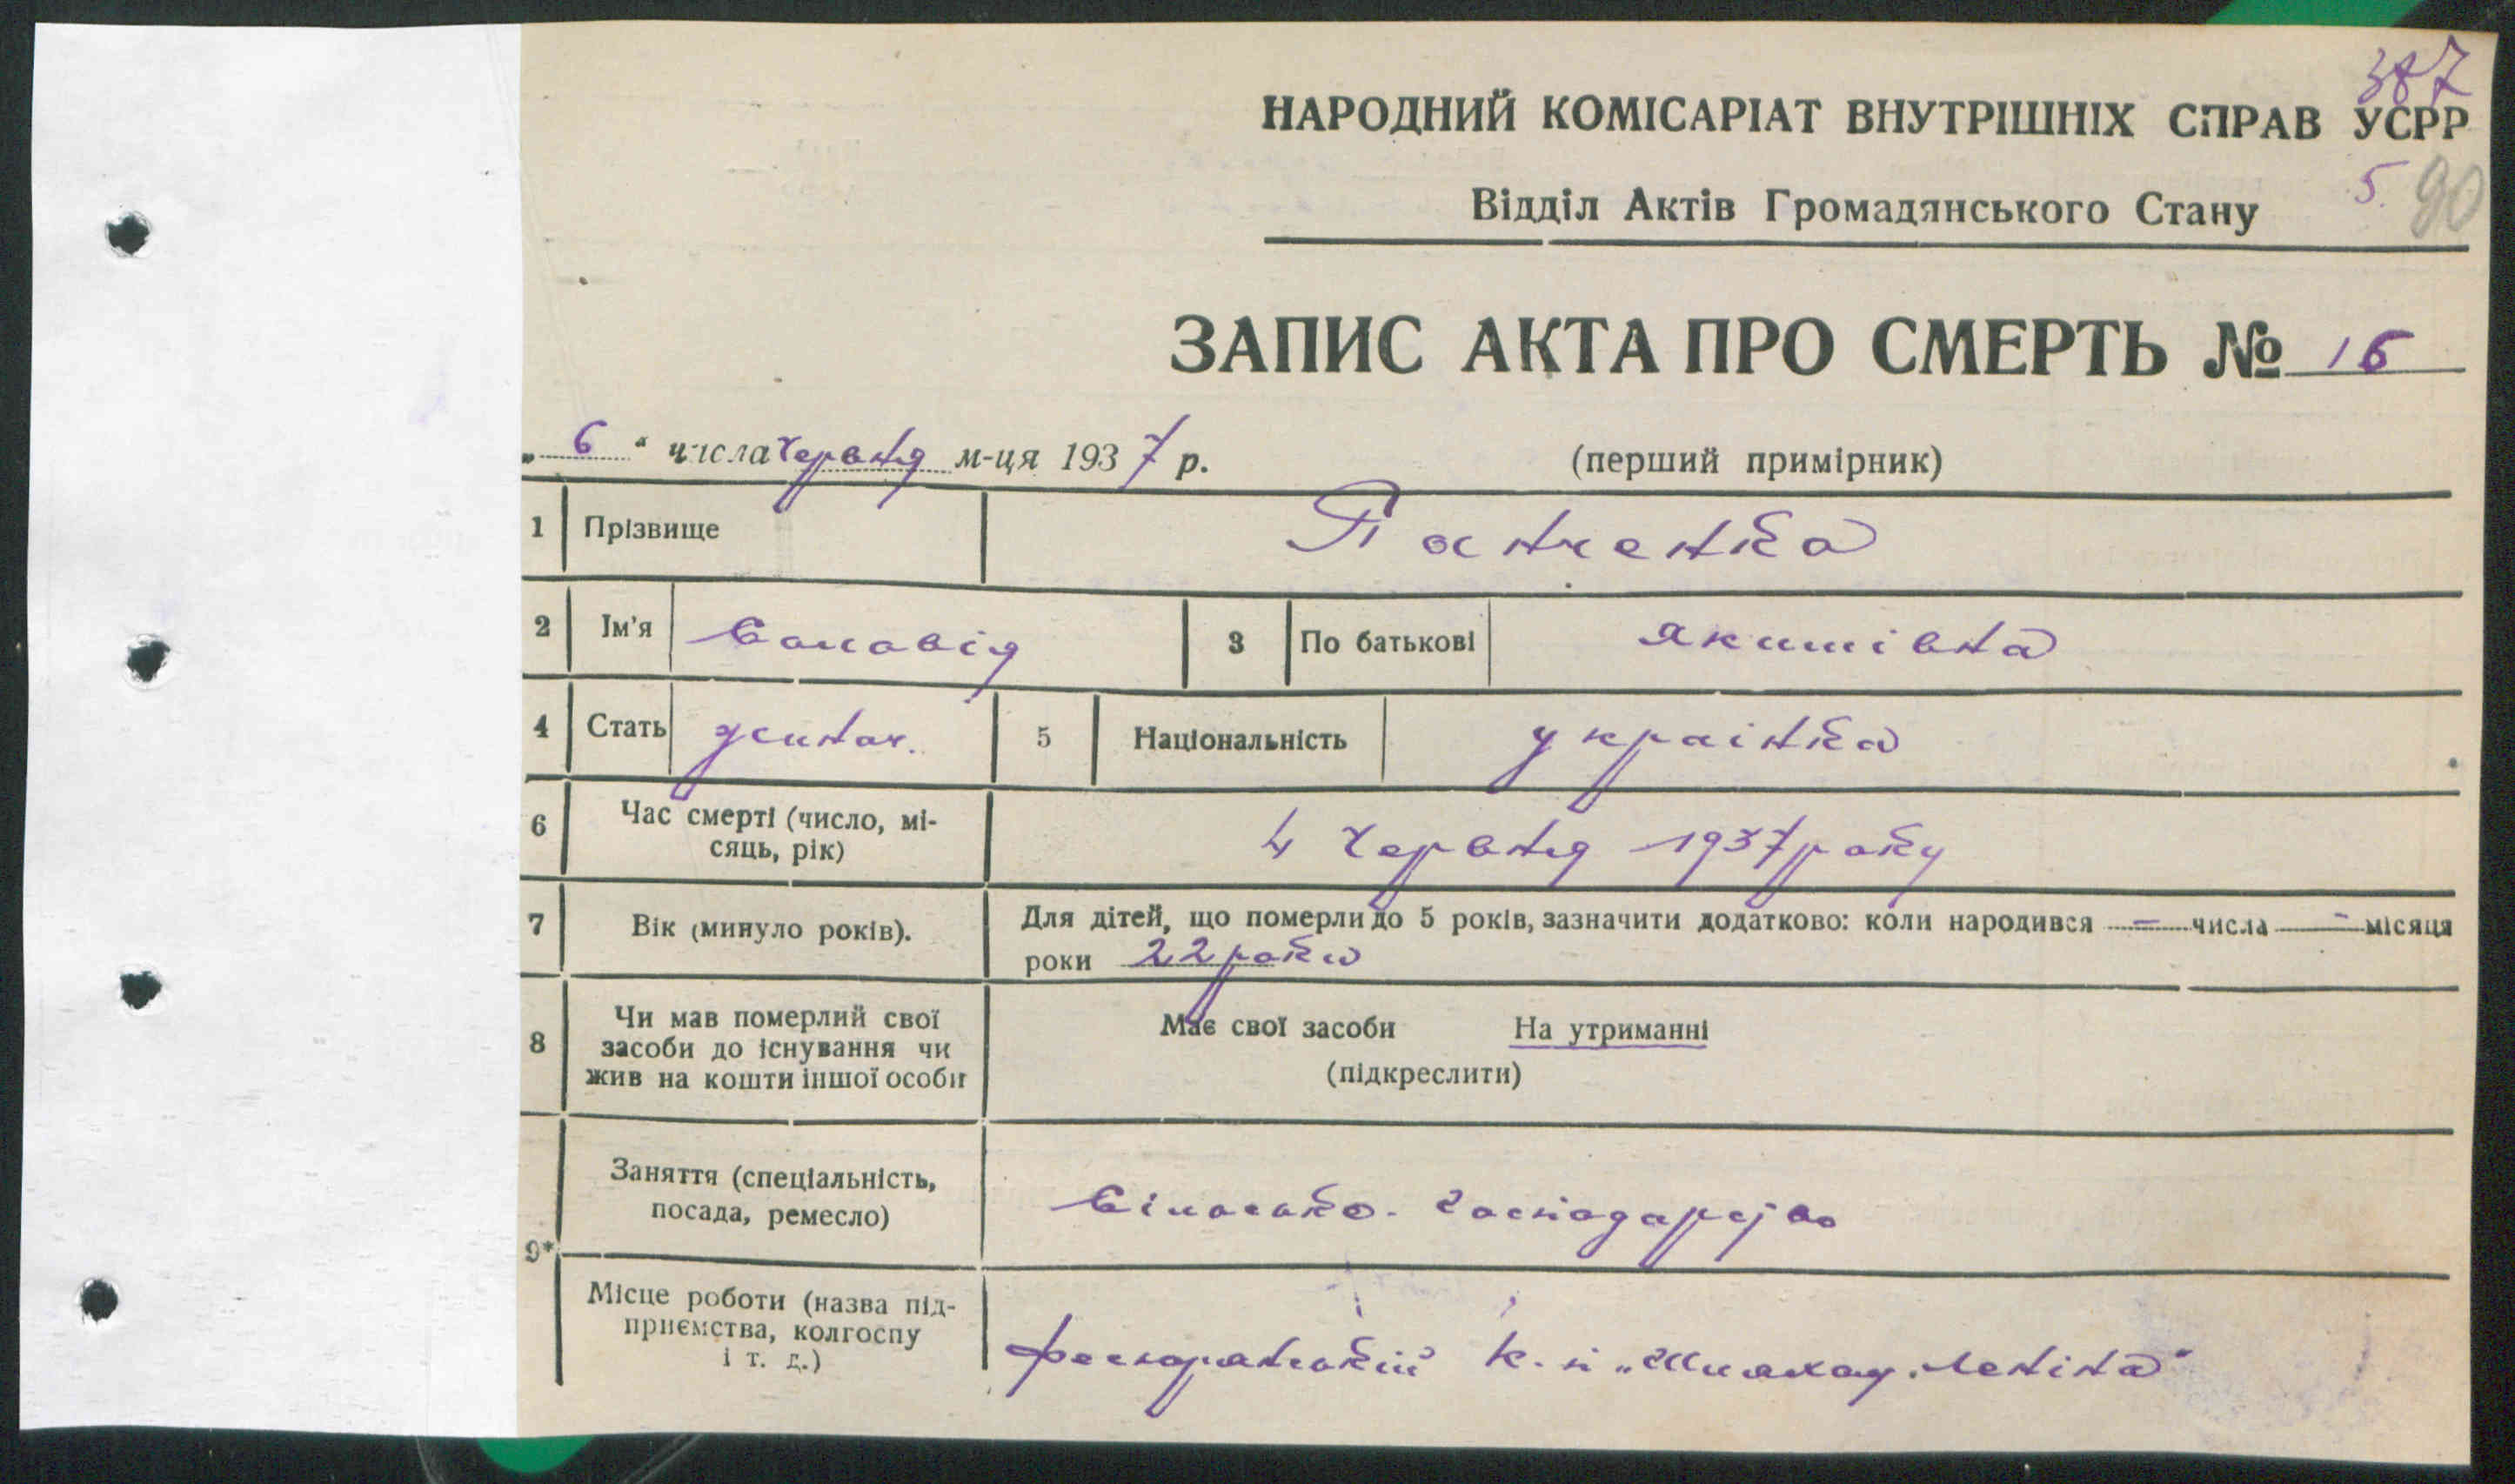 387
НАРОДНИЙ КОМІСАРІАТ ВНУТРІШНІХ СПРАВ УСРР
Відділ Актів Громадянського Стану
5. 90
ЗАПИС АКТА ПРО СМЕРТЬ № 16
„ 6 " числа червня м-ця 1937 р. (перший примірник)
1 Прізвище
2 Ім'я 3 По батькові якимівна
4 Стать 5 Національність українка
6 Час смерті (число, мі-
сяць, рік)
4 червня 1937 року
7 Вік (минуло років).
Для дітей, що померли до 5 років, зазначити додатково: коли народився = числа - місяця
роки 22 роки
8 Чи мав померлий свої
засоби до існування чи
жив на кошти іншої особи
Має свої засоби На утриманні
(підкреслити)
9* Заняття (спеціальність,
посада, ремесло)
Місце роботи (назва під-
приємства, колгоспу
і т. д.)
Леніна"